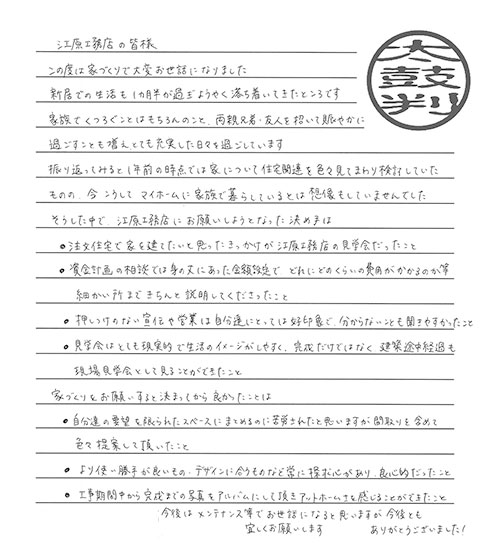 江原工務店の皆様
太鼓判
この度は家づくりで大変お世話になりました
新居での生活も1カ月半が過ぎようやく落ち着いてきたところです
家族でくつろぐことはもちろんのこと、両親兄弟・友人を招いて賑やかに
過ごすことも増えとても充実した日々を過ごしています
振り返ってみると1年前の時点では家について住宅関連を色々見てまわり検討していた
ものの、今こうして マイホームに家族で暮らしているとは想像もしていませんでした
そうした中で、江原工務店にお願いしようとなった決め手は
• 注文住宅で家を建てたいと思ったきっかけが江原工務店の見学会だったこと
• 資金計画の相談では身の丈にあった金額設定で どれにどのくらいの費用がかかるのか等
細かい所まできちんと説明してくださったこと
• 押しつけのない宣伝や営業は自分達にとっては好印象で、分からないことも聞きやすかったこと
• 見学会はとても現実的で生活のイメージがしやすく、完成だけではなく 建築途中経過も
現場見学会として見ることができたこと
家づくりをお願いすると決まってから良かったことは
• 自分達の要望を限られたスペースにまとめるのに苦労されたと思いますが間取りを含めて
色々提案して頂いたこと
• より使い勝手が良いもの、デザインに合うものなど常に探求心があり、良心的だったこと
• 工事期間中から完成までの写真をアルバムにして頂きアットホームさを感じることができたこと
今後はメンテナンス等でお世話になると思いますが今後とも
宜しくお願いします ありがとうございました!